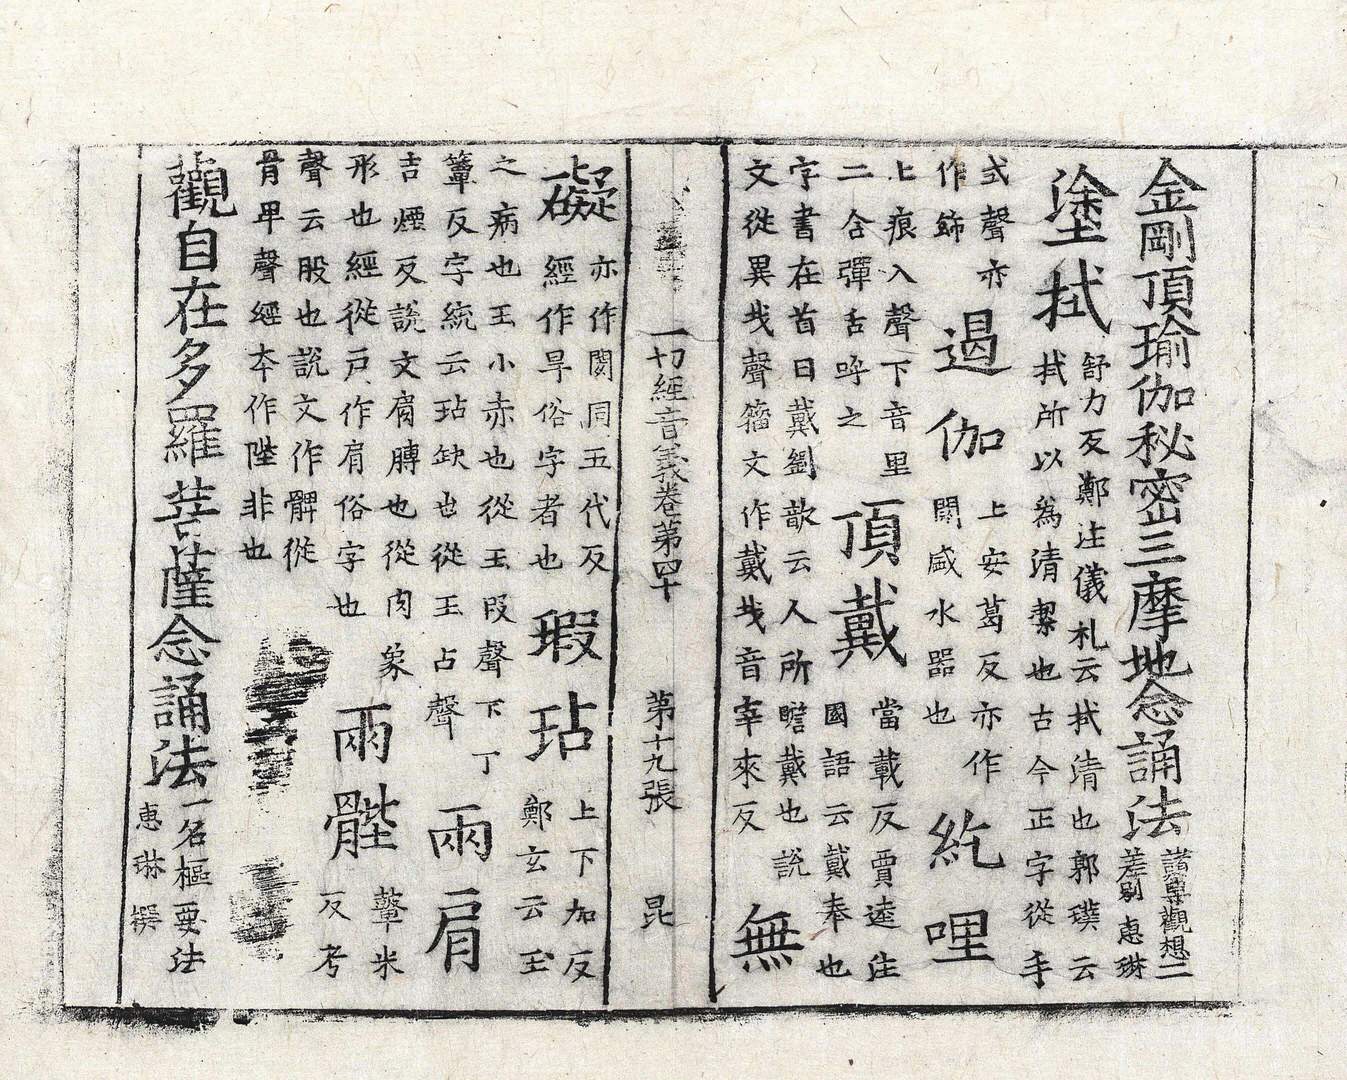 金剛頂瑜伽秘密三摩地念誦法
諸尊觀想二
差別惠琳
塗拭
舒力反鄭注儀札云拭清也郭璞云
拭所以為清潔也古今正字從手
式聲亦
作飾
遏伽
上安葛反亦作
閼盛水器也
紇哩
上痕入聲下音里
二合彈舌呼之
頂戴
當載反賈逵注
國語云戴奉也
字書在首曰戴劉歆云人所瞻戴也說
文從異𢦏聲籀文作戴𢦏音宰來反
無
一切經音義卷第四十 第十九張 昆
礙
亦作閡同五代反
經作旱俗字者也
瑕玷
上下加反
鄭玄云玉
之病也玉小赤也從玉叚聲下丁
簟反字統云玷缺也從玉占聲
兩肩
吉煙反說文肩膊也從肉象
形也經從戶作肩俗字也
兩䯗
鼙米
反考
聲云股也說文作髀從
骨卑聲經本作陛非也
觀自在多羅菩薩念誦法
一名樞要法
惠琳撰